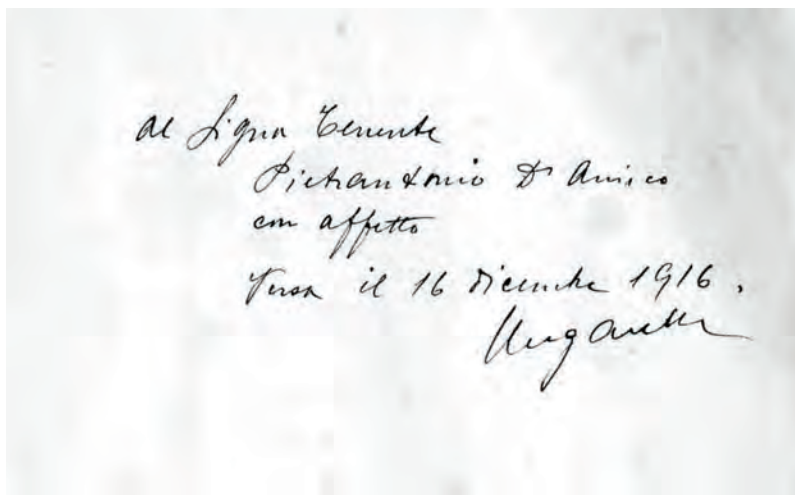 al Signor Tenente
Pietrantonio D'Amico
con affetto
Versa il 16 dicembre 1916.
Ungaretti